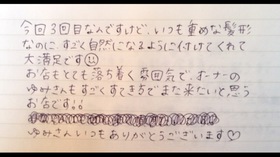 今回3回目なんですけど、いつも重めな髪形
なのに、すごく自然になるように付けてくれて
大満足です
お店もとても落ち着く雰囲気で、オーナーの
ゆみさんもすごくすてきでまた来たいと思う
お店です!!
ゆみさんいつもありがとうございます♡